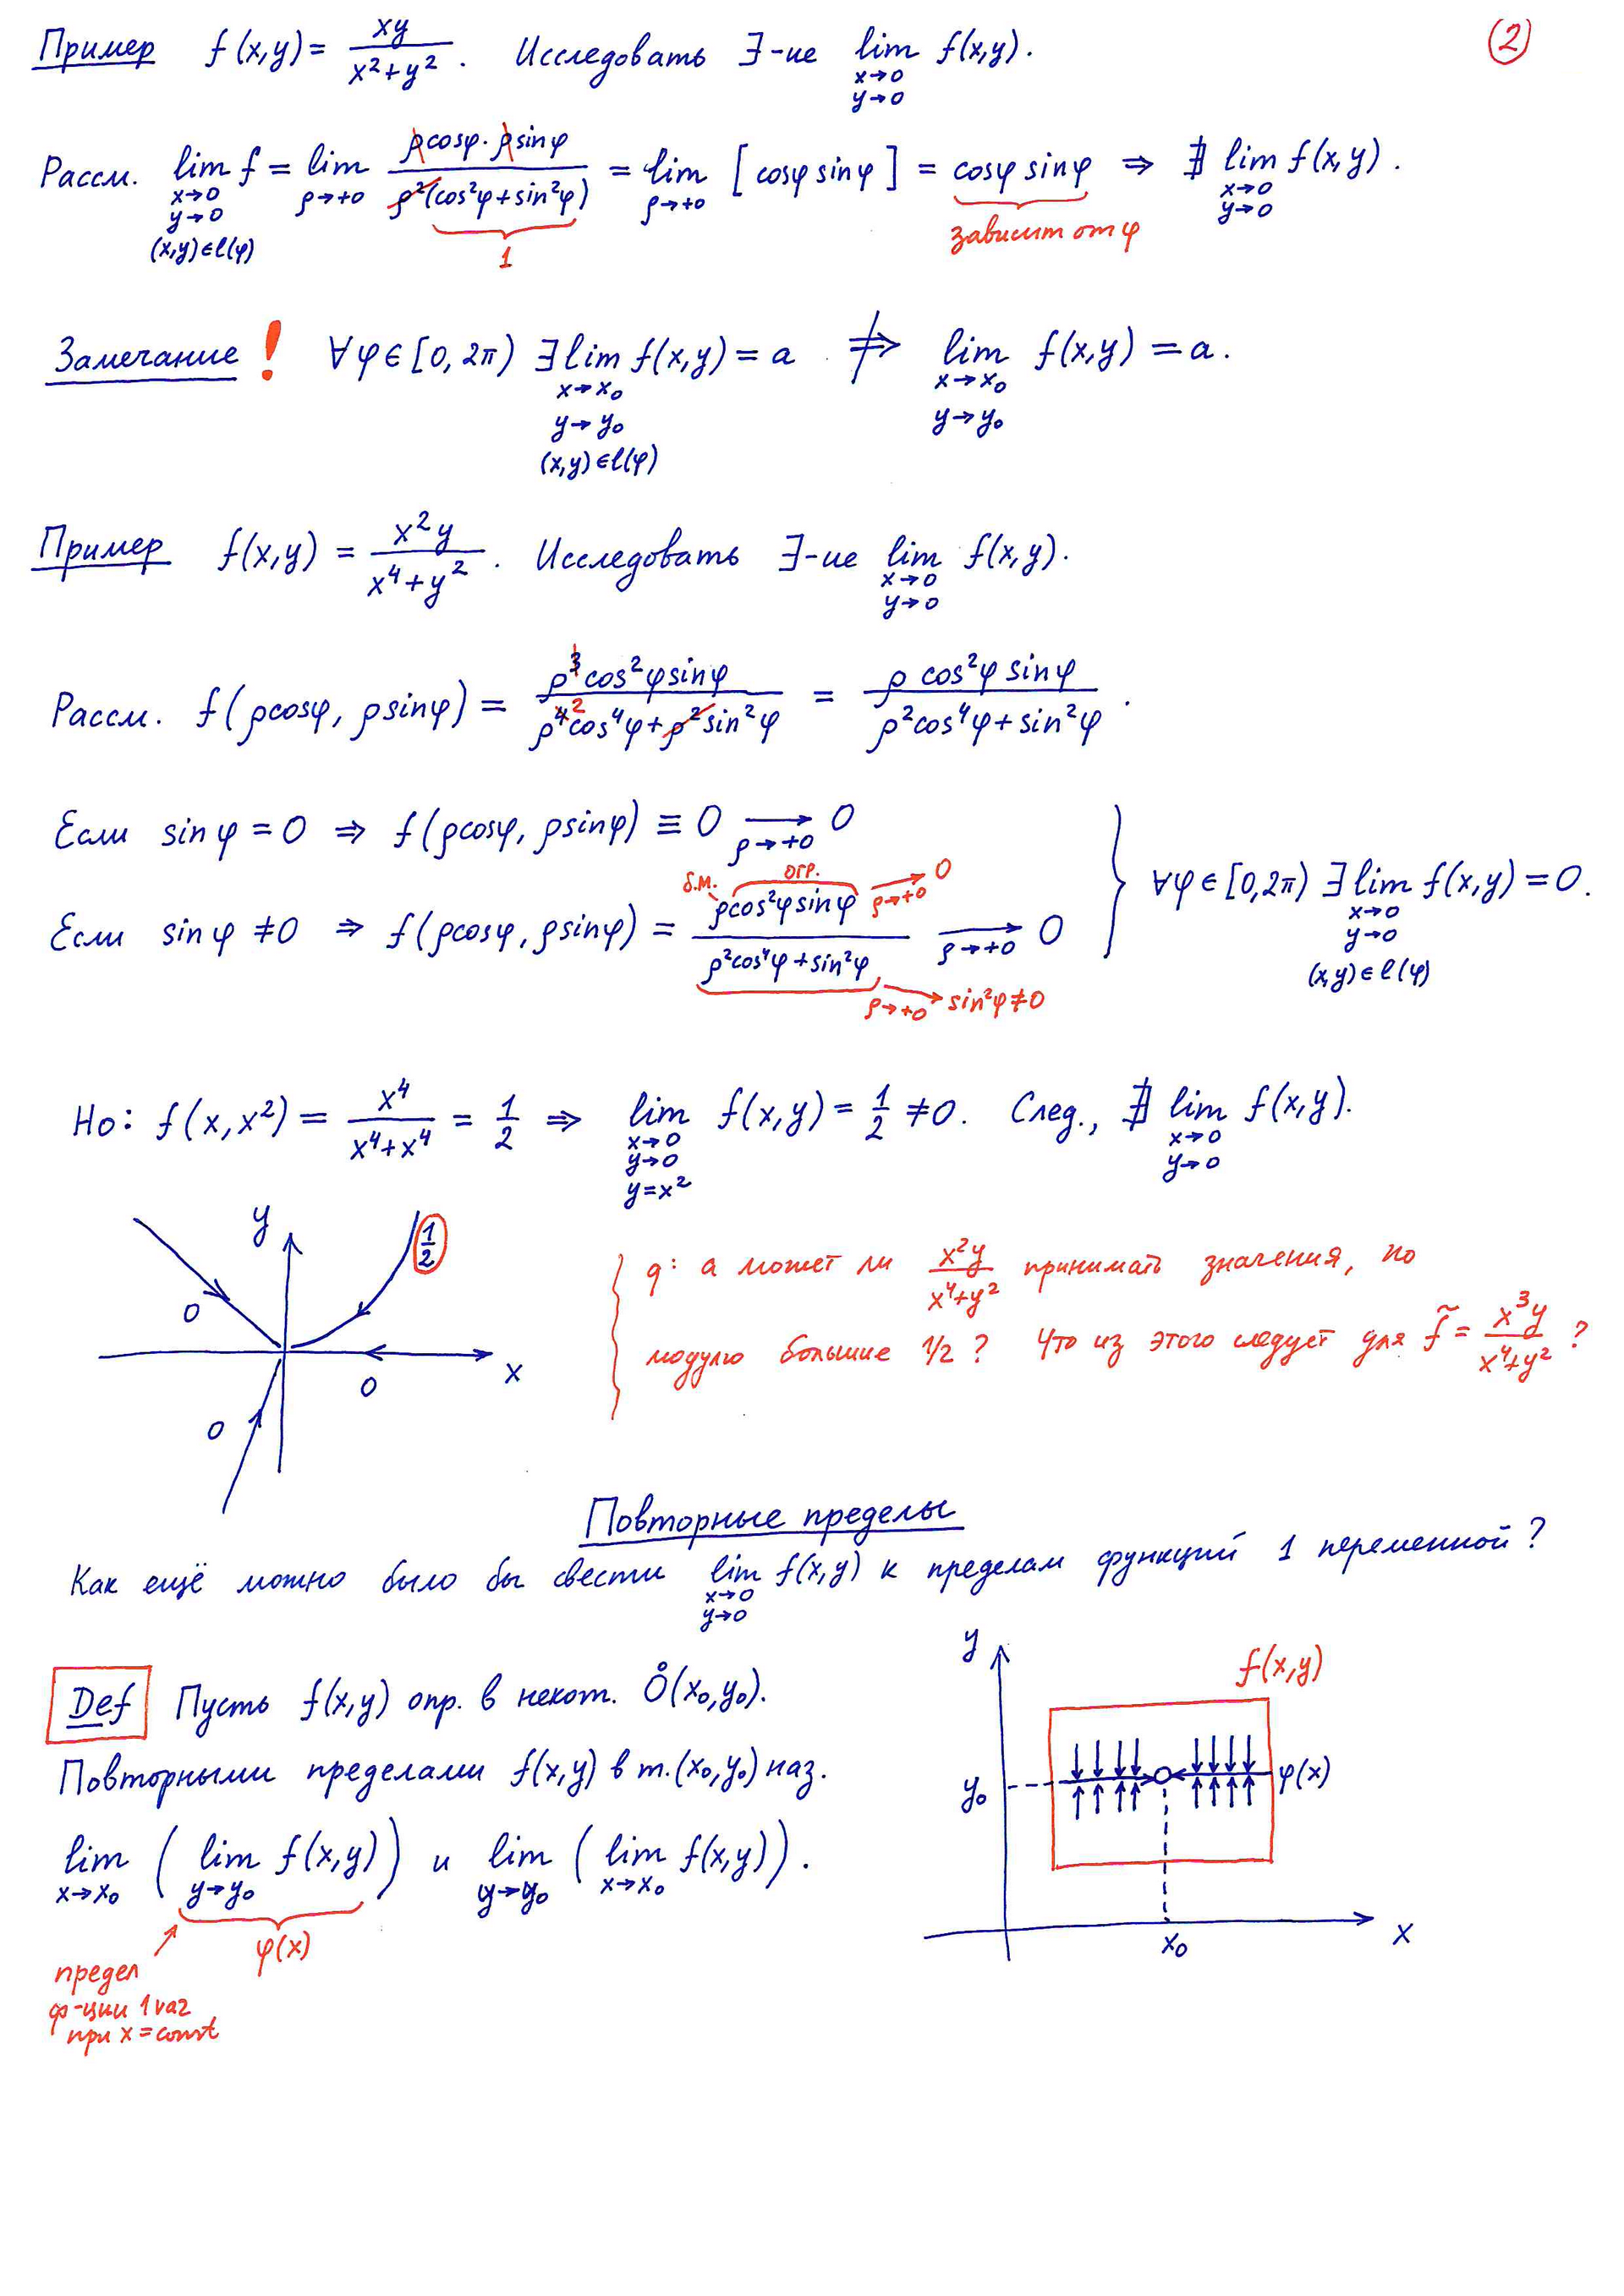 Пример f(x,y) = xy / (x² + y²). Исследовать ∃-ие lim_{x→0, y→0} f(x,y). (2)
Рассм. lim_{x→0, y→0, (x,y)∈l(φ)} f = lim_{ρ→+0} ρcosφ·ρsinφ / ρ²(cos²φ+sin²φ) = lim_{ρ→+0} [cosφ sinφ] = cosφ sinφ ⇒ ∄ lim_{x→0, y→0} f(x,y).
1
зависит от φ
Замечание! ∀φ∈[0, 2π) ∃ lim_{x→x₀, y→y₀, (x,y)∈l(φ)} f(x,y) = a ⇏ lim_{x→x₀, y→y₀} f(x,y) = a.
Пример f(x,y) = x²y / (x⁴ + y²). Исследовать ∃-ие lim_{x→0, y→0} f(x,y).
Рассм. f(ρcosφ, ρsinφ) = ρ³cos²φ sinφ / (ρ⁴ ² cos⁴φ + ρ² sin²φ) = ρ cos²φ sinφ / (ρ²cos⁴φ + sin²φ).
Если sinφ = 0 ⇒ f(ρcosφ, ρsinφ) ≡ 0 ⟶_{ρ→+0} 0
б.м. огр. ⟶_{ρ→+0} 0
Если sinφ ≠ 0 ⇒ f(ρcosφ, ρsinφ) = ρcos²φ sinφ / (ρ²cos⁴φ + sin²φ) ⟶_{ρ→+0} 0 } ∀φ∈[0,2π) ∃ lim_{x→0, y→0, (x,y)∈l(φ)} f(x,y) = 0.
⟶_{ρ→+0} sin²φ ≠ 0
Но: f(x, x²) = x⁴ / (x⁴+x⁴) = 1/2 ⇒ lim_{x→0, y→0, y=x²} f(x,y) = 1/2 ≠ 0. След., ∄ lim_{x→0, y→0} f(x,y).
y 1/2
0
x
0
0
q: а может ли x²y / (x⁴+y²) принимать значения, по
модулю большие 1/2? Что из этого следует для f̃ = x³y / (x⁴+y²)?
Повторные пределы
Как ещё можно было бы свести lim_{x→0, y→0} f(x,y) к пределам функций 1 переменной?
Def Пусть f(x,y) опр. в некот. O̊(x₀,y₀).
Повторными пределами f(x,y) в т.(x₀,y₀) наз.
lim_{x→x₀} ( lim_{y→y₀} f(x,y) ) и lim_{y→y₀} ( lim_{x→x₀} f(x,y) ).
φ(x)
предел
ф-ции 1 var
при x = const
y
f(x,y)
y₀
φ(x)
x₀
x